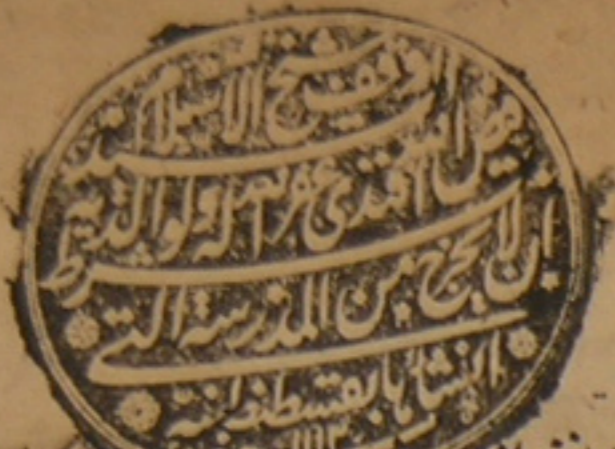 وقف شيخ الاسلام السيد
فيض الله افندي غفر الله له ولوالديه
بشرط أن لا يخرج من المدرسة التي
انشاها بقسطنطنية
١١١٣